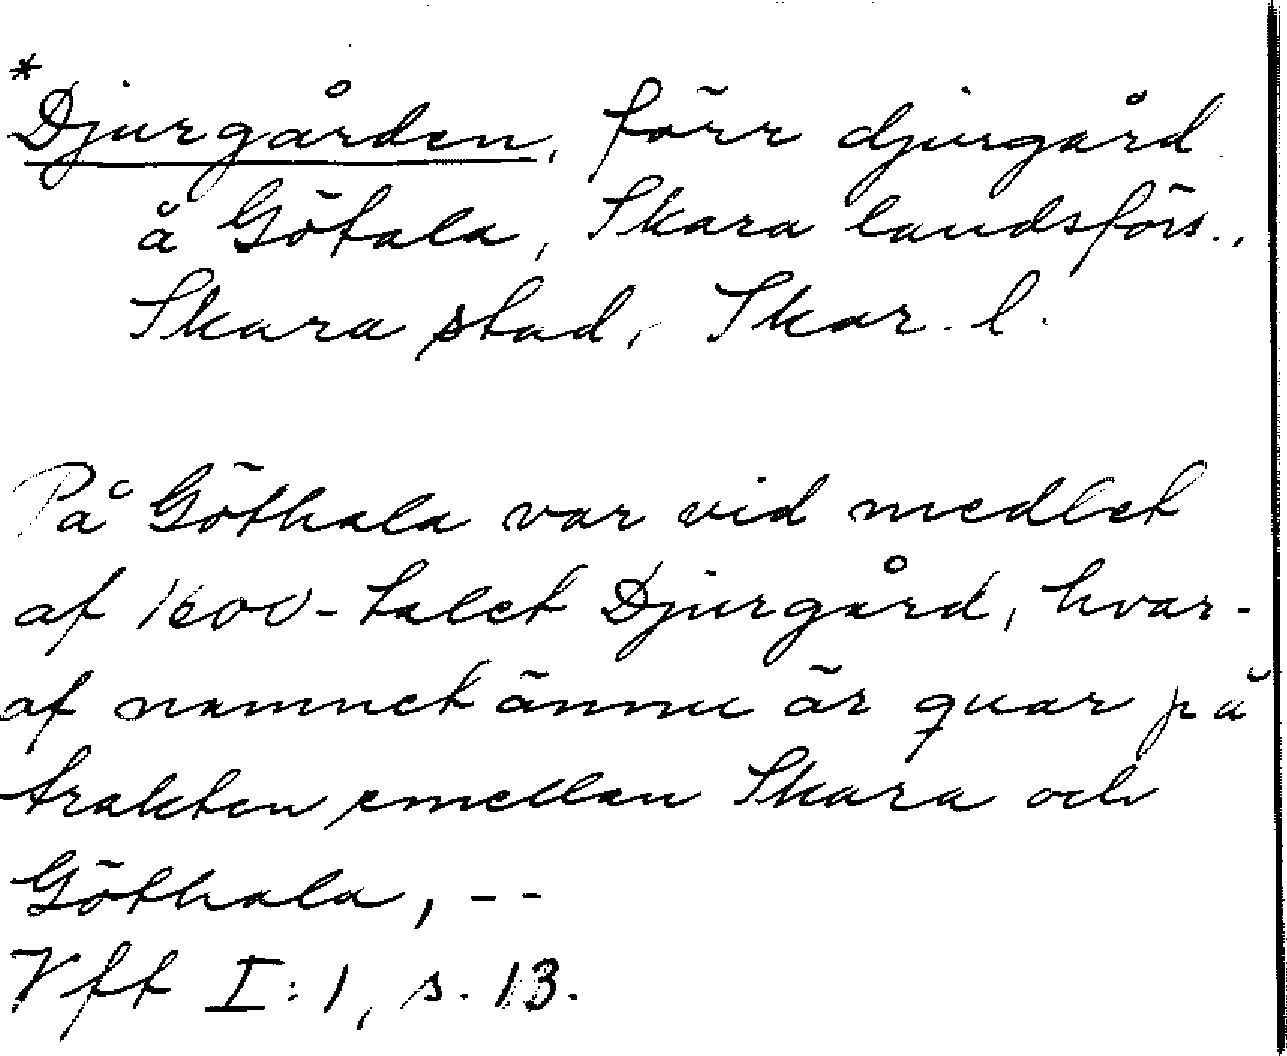 *
Djurgården, förr djurgård
å Götala, Skara landsförs.,
Skara stad, Skar. l.
På Göthala var vid medlet
af 1600-talet Djurgård, hvar-
af namnet ännu är quar på
trakten emellan Skara och
Göthala, --
Vft I:1, s. 13.